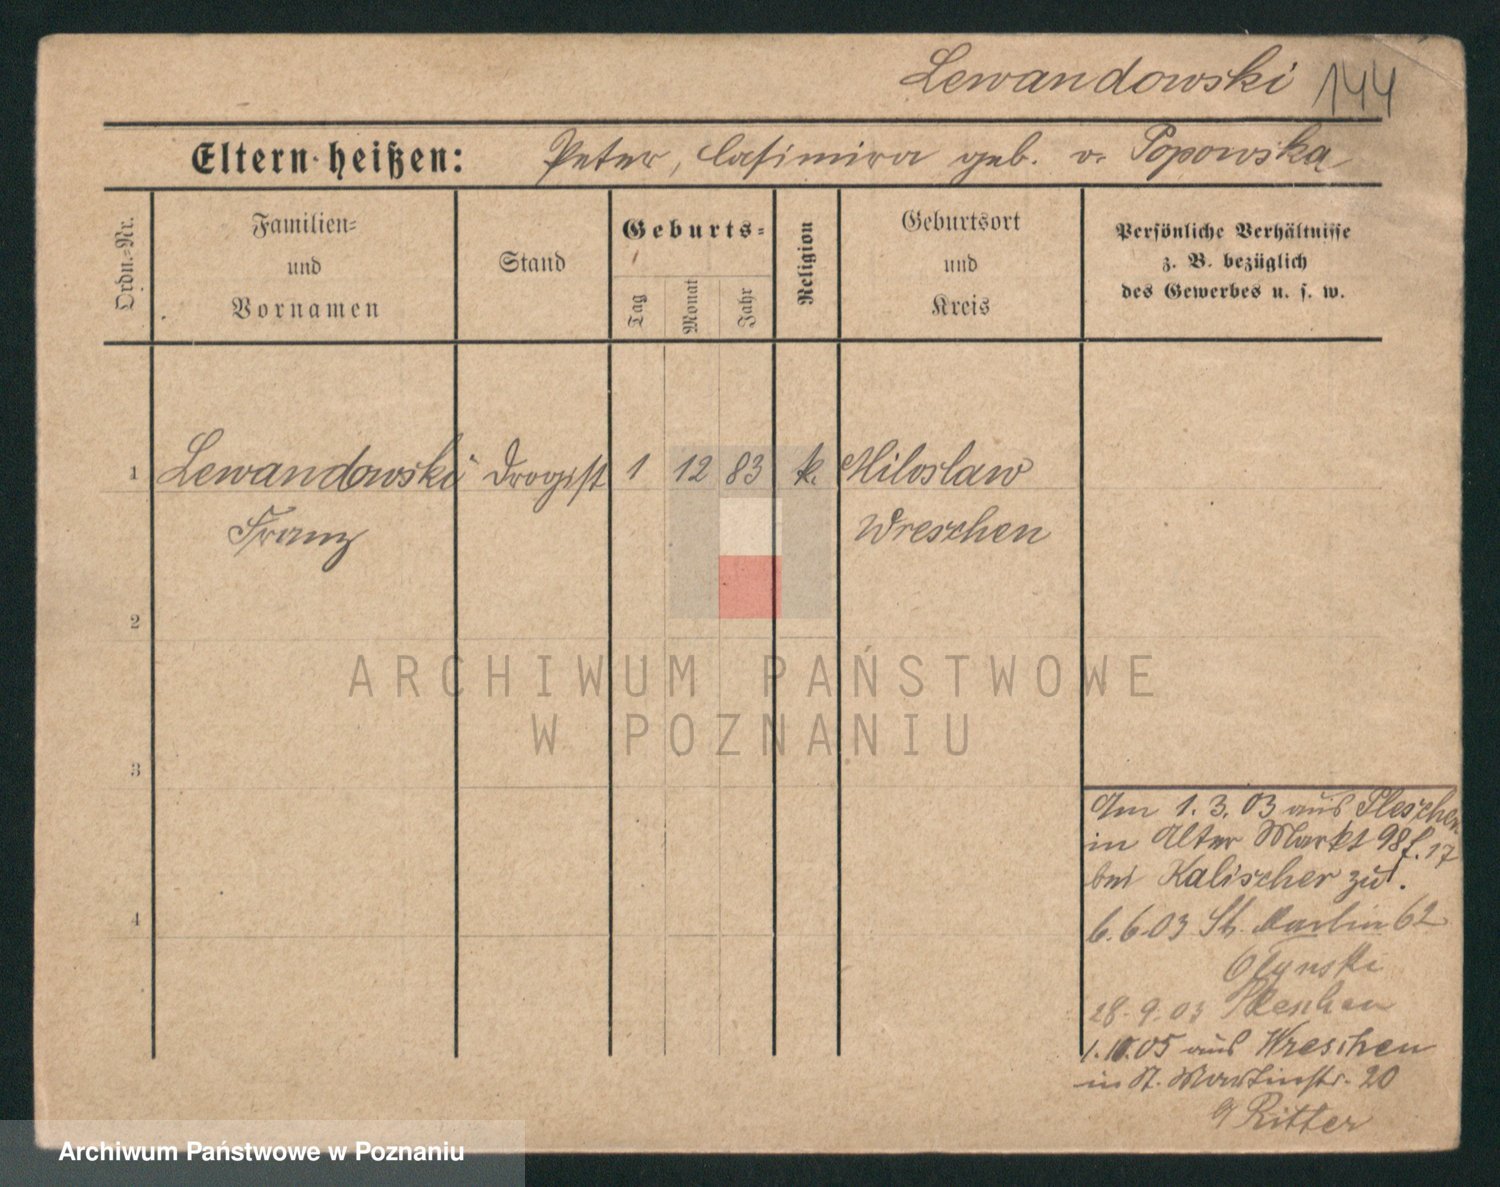 Lewandowski 144
Eltern heißen: Peter, Casimira geb. v. Popowska
Ordn.-Nr.
Familien-
und
Vornamen
Stand
Geburts-
Tag
Monat
Jahr
Religion
Geburtsort
und
Kreis
Persönliche Verhältnisse
z. B. bezüglich
des Gewerbes u. s. w.
1 Lewandowski Drogist 1 12 83 k. Miloslaw
Franz Wreschen
2
3
4
Am 1. 3. 03 aus Pleschen
in Alter Markt 98 f. 17
bei Kalischer zu.
6. 6. 03 St. Martin 62
28. 9. 03 Pleschen
1. 10. 05 aus Wreschen
in St. Martinstr. 20
Ritter
ARCHIWUM PAŃSTWOWE
W POZNANIU
Archiwum Państwowe w Poznaniu